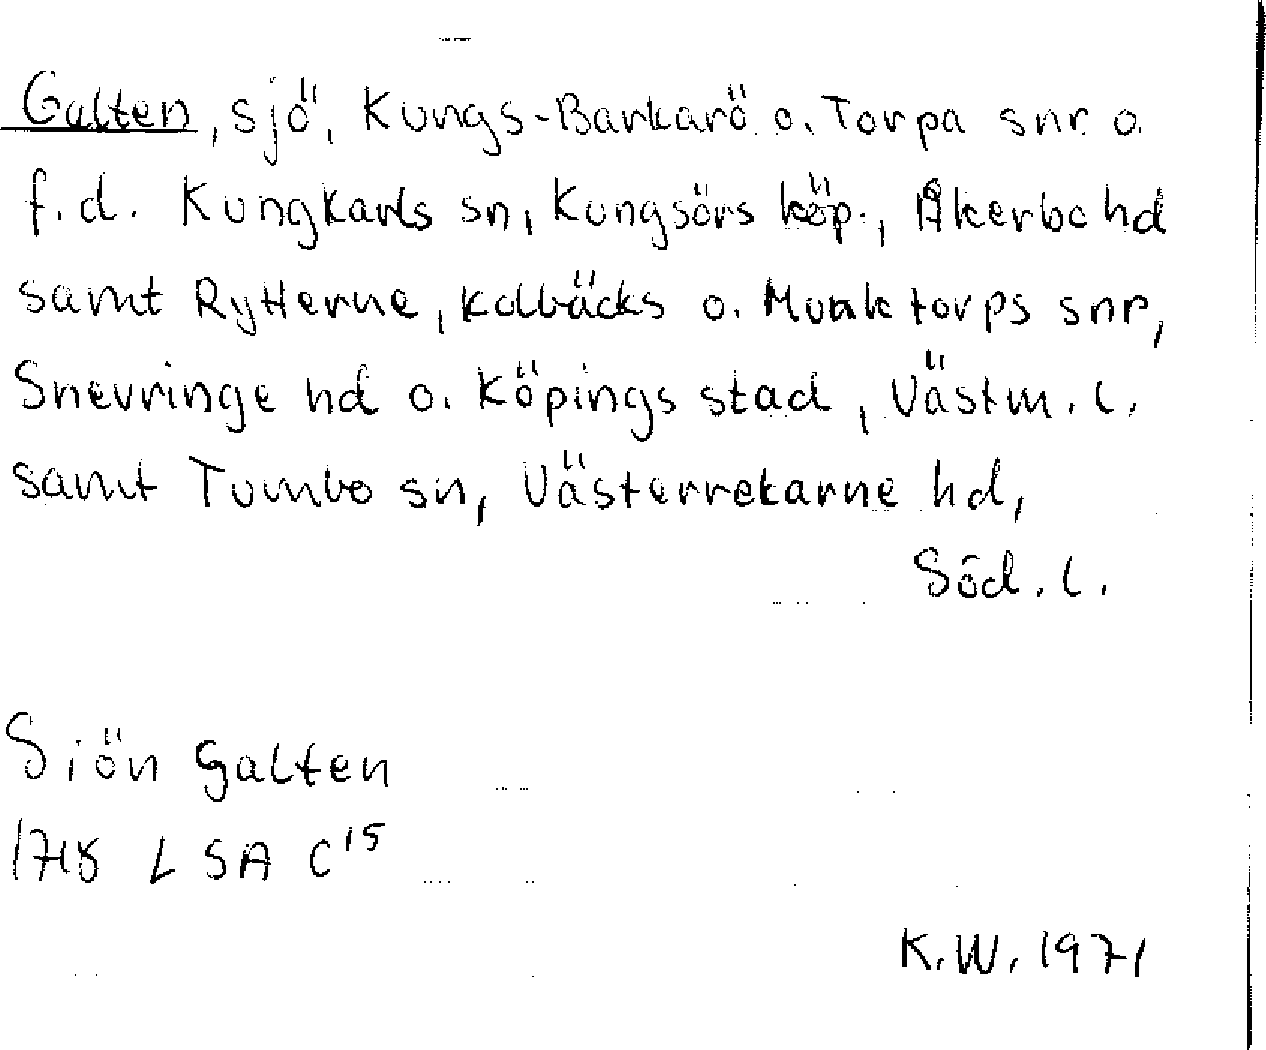 Galten, sjö, Kungs-Barkarö o. Torpa snr o.
f.d. Kungkarls sn, Kungsörs köp., Åkerbo hd
samt Rytterne, Kolbäcks o. Munktorps snr,
Snevringe hd o. Köpings stad, Västm. l.
samt Tumbo sn, Västerrekarne hd,
Söd. l.
Siön Galten
1718 LSA C15
K.W. 1971